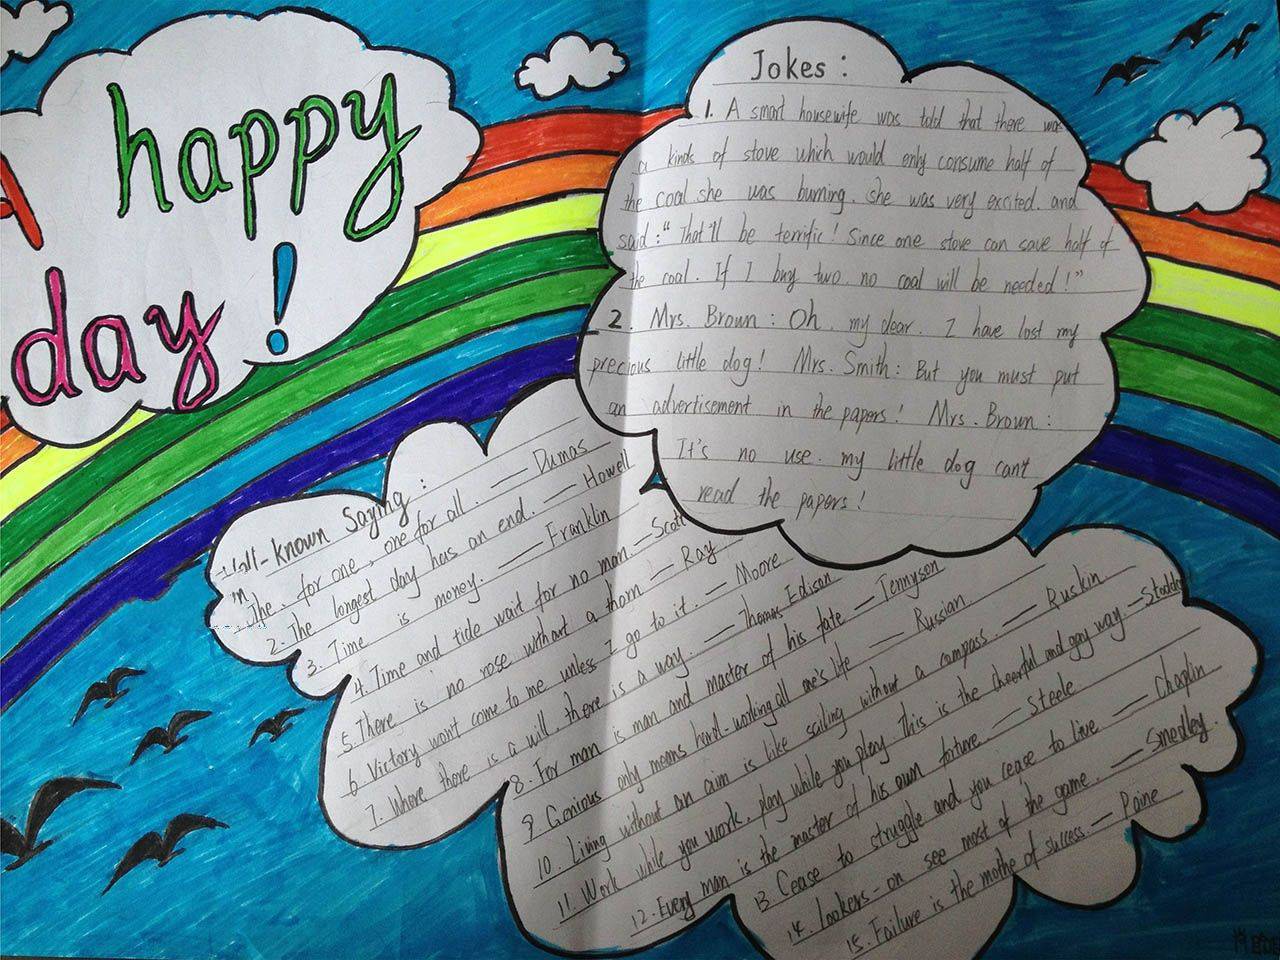 A happy
day!
Jokes:
1. A smart housewife was told that there was
a kinds of stove which would only consume half of
the coal she was burning. she was very excited. and
said: "That'll be terrific! Since one stove can save half of
the coal. If I buy two. no coal will be needed!"
2. Mrs. Brown: Oh. my dear. I have lost my
precious little dog! Mrs. Smith: But you must put
an advertisement in the papers! Mrs. Brown:
It's no use. my little dog can't
read the papers!
Well-known Saying:
for one, one for all. — Dumas
2. The longest day has an end. — Howell
3. Time is money. — Franklin
4. Time and tide wait for no man. — Scott
5. There is no rose without a thorn — Ray
6. Victory won't come to me unless I go to it. — Moore
7. Where there is a will, there is a way. — Thomas Edison
8. For man is man and master of his fate — Tennyson
9. Genious only means hard-working all one's life — Russian
10. Living without an aim is like sailing without a compass. — Ruskin
11. Work while you work, play while you play. This is the cheerful and gay way —
12. Every man is the master of his own fortune. — Steele
13. Cease to struggle and you cease to live — Chaplin
14. Lookers-on see most of the game. — Smedley.
15. Failure is the mothe of success. — Paine